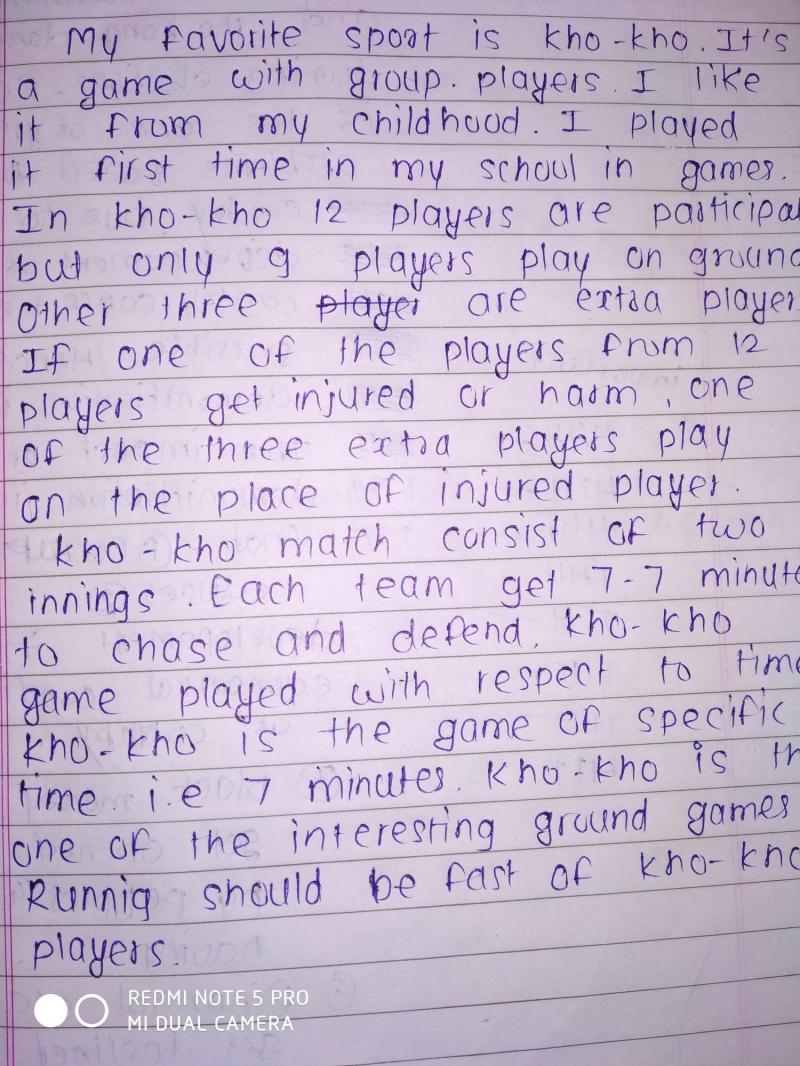 My favorite sport is kho-kho. It's
a game with group. players. I like
it from my childhood. I played
it first time in my school in games.
In kho-kho 12 players are participa
but only 9 players play on ground
Other three player are extra player
If one of the players from 12
players get injured or harm, one
of the three extra players play
on the place of injured player.
kho-kho match consist of two
innings. Each team get 7-7 minute
to chase and defend. kho-kho
game played with respect to time
kho-kho is the game of specific
time. i.e 7 minutes. kho-kho is th
one of the interesting ground games
Runnig should be fast of kho-kho
players.
REDMI NOTE 5 PRO
MI DUAL CAMERA